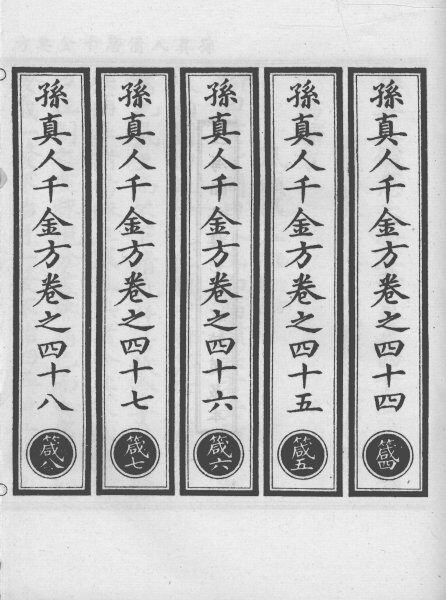 孫真人千金方卷之四十四
箴四
孫真人千金方卷之四十五
箴五
孫真人千金方卷之四十六
箴六
孫真人千金方卷之四十七
箴七
孫真人千金方卷之四十八
箴八